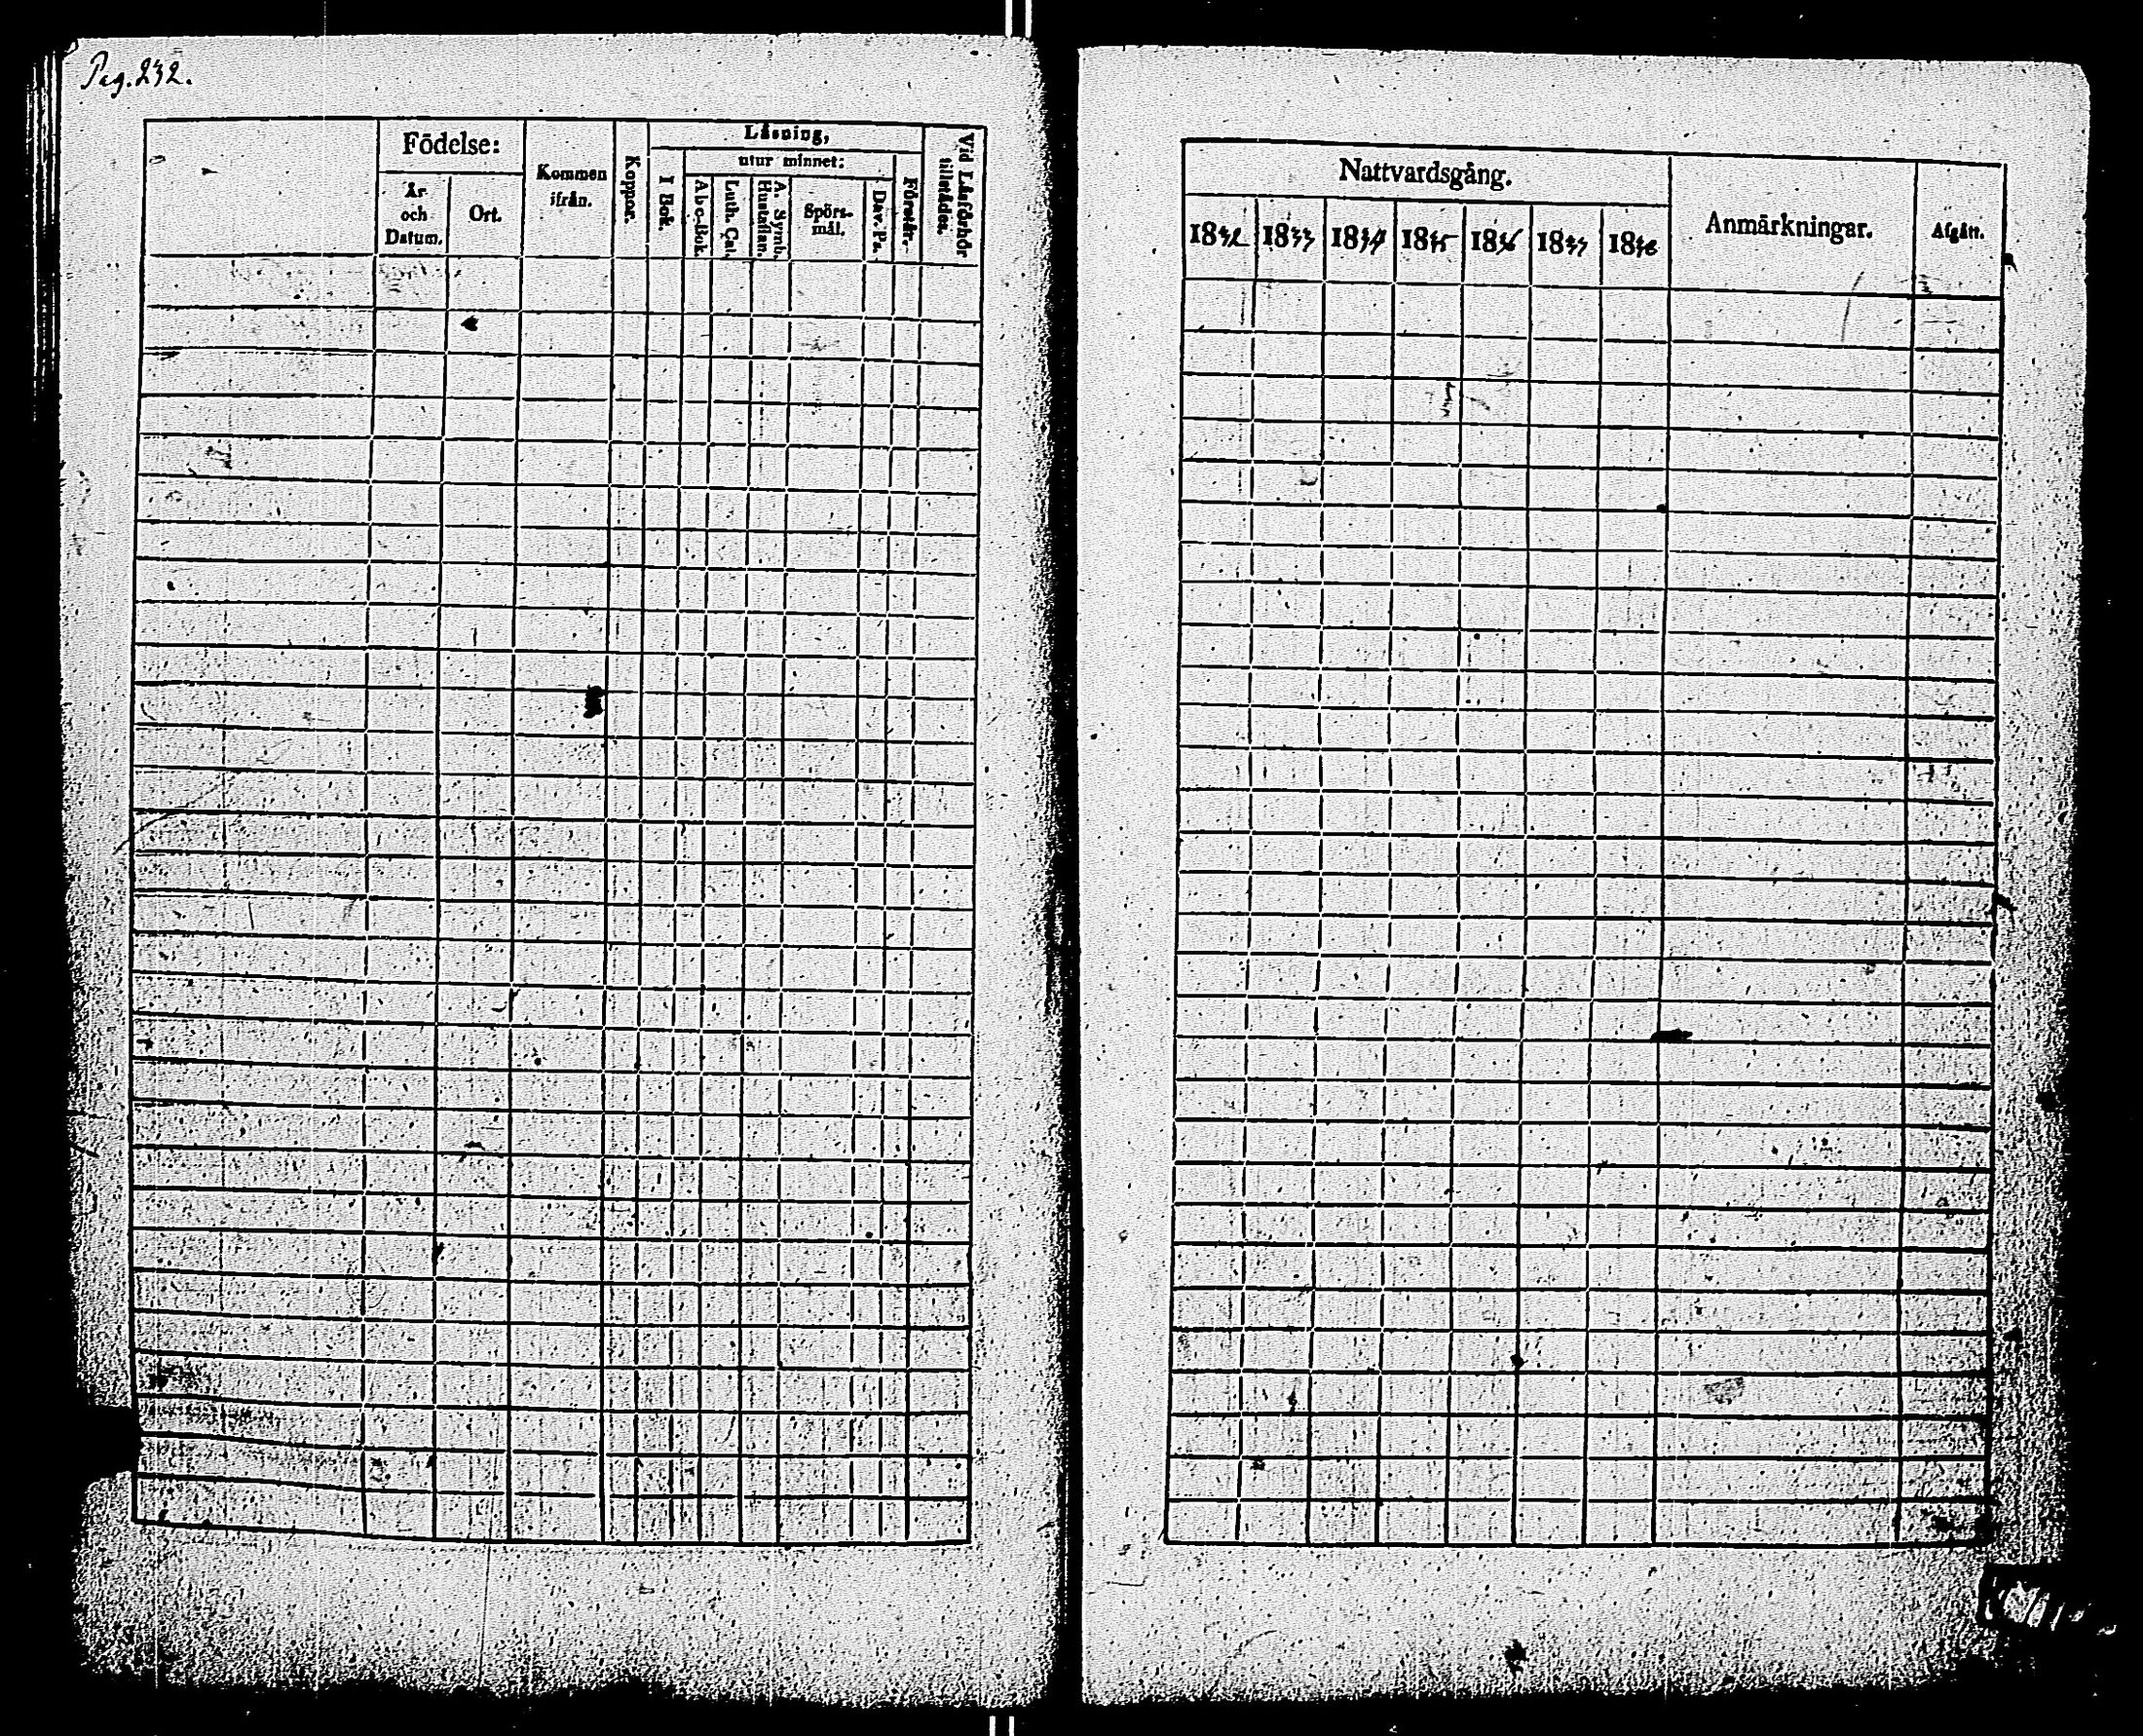 Pag. 232.
Födelse:
År och Datum.
Ort.
Kommen ifrån.
Koppor.
Läsning,
I Bok.
utur minnet:
Abc-Bok.
Luth. Cat.
A. Symb. Hustaflan.
Spörs-mål.
Dav. Ps.
Förstår.
Vid Läsförhör tillstädes.
Nattvardsgång.
1832 1833 1834 1835 1836 1837 1838
Anmärkningar.
Afgått.